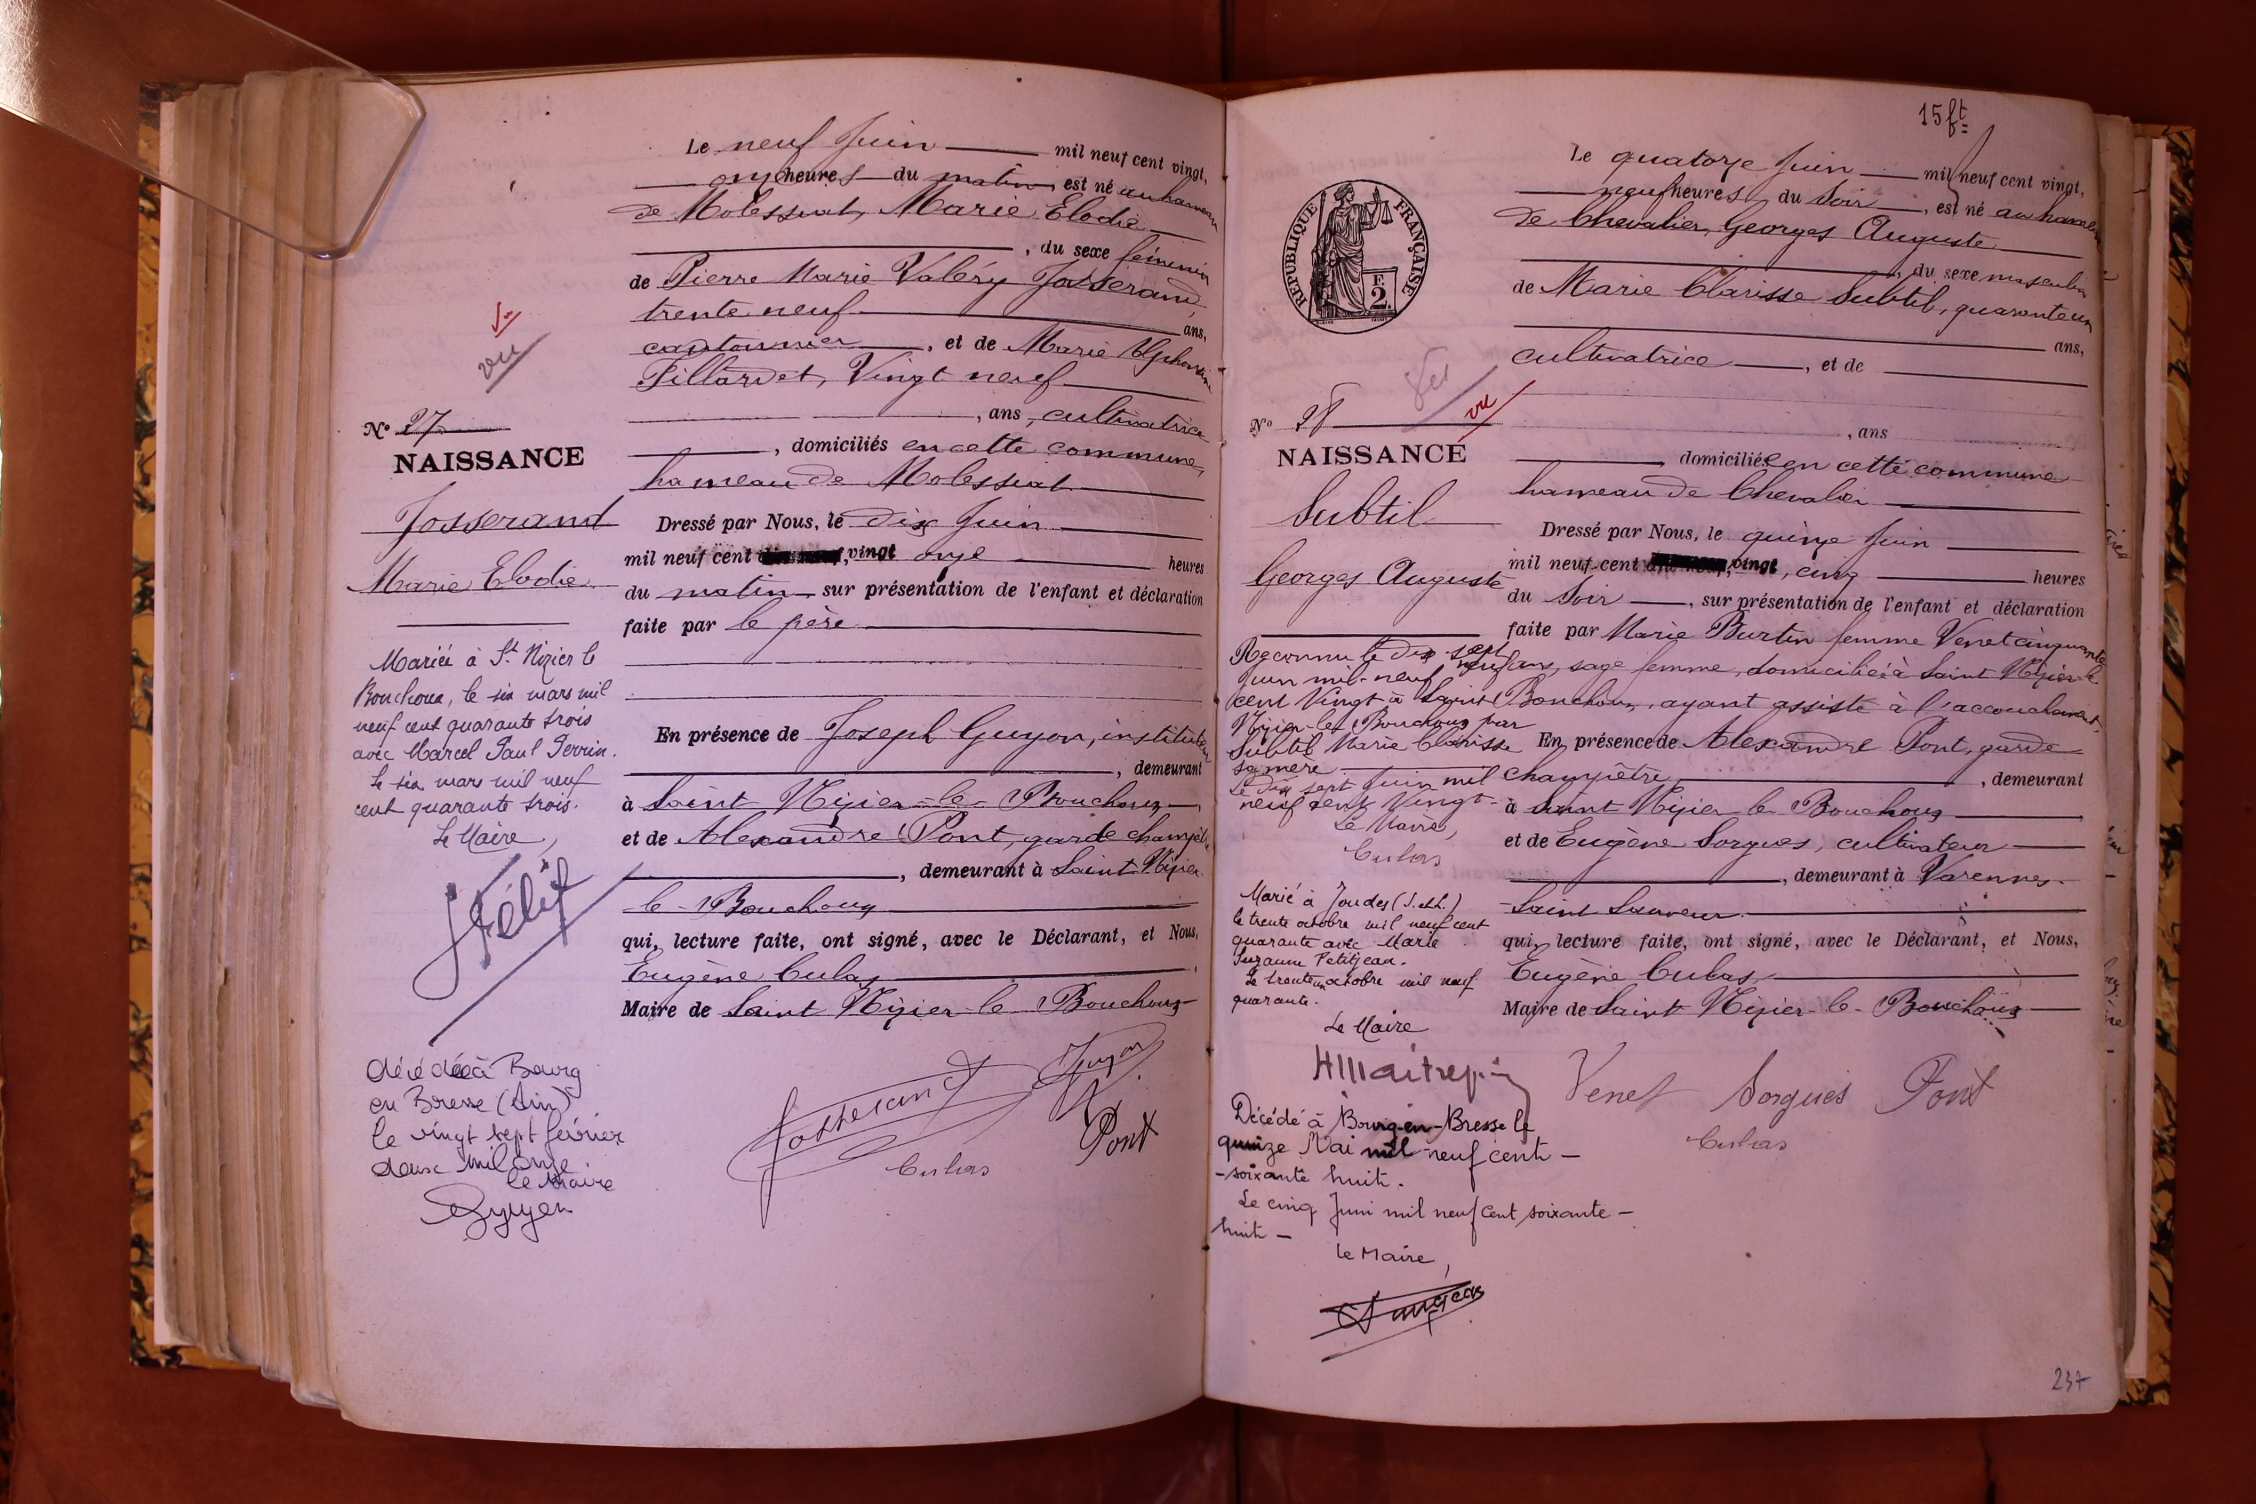 Le neuf Juin mil neuf cent vingt,
onze heures du matin, est né au hameau
de Molessiat, Marie Elodie
, du sexe féminin
de Pierre Marie Valéry Josserand
trente neuf ans,
cantonnier, et de Marie Alphonsine
Pillardet, Vingt neuf
, ans, cultivatrice
, domiciliés en cette commune,
hameau de Molessiat
Dressé par Nous, le dix Juin
mil neuf cent vingt onze heures
du matin, sur présentation de l'enfant et déclaration
faite par le père
En présence de Joseph Guyon, instituteur
, demeurant
à Saint Nizier-le-Bouchoux,
et de Alexandre Pont, garde champêtre
, demeurant à Saint-Nizier
le-Bouchoux
qui, lecture faite, ont signé, avec le Déclarant, et Nous,
Eugène Cubas,
Maire de Saint Nizier-le Bouchoux
Josserand Guyon
Cubas Pont
vu
vu
N° 27
NAISSANCE
Josserand
Marie Elodie
Mariée à St Nizier le
Bouchoux, le six mars mil
neuf cent quarante trois
avec Marcel Paul Perrin.
Le six mars mil neuf
cent quarante trois.
Le Maire,
Félix
décédée à Bourg
en Bresse (Ain)
le vingt sept février
deux mil onze
le Maire
15 ft
Le quatorze Juin mil neuf cent vingt,
neuf heures du soir, est né au hameau
de Chevalier, Georges Auguste
, du sexe masculin
de Marie Clarisse Subtil, quarante un
ans,
cultivatrice, et de
, ans
domiciliés en cette commune
hameau de Chevalier
Dressé par Nous, le quinze Juin
mil neuf cent vingt, cinq heures
du soir, sur présentation de l'enfant et déclaration
faite par Marie Burtin femme Venet cinquante
neuf ans, sage femme, domiciliée à Saint Nizier-le
Bouchoux, ayant assisté à l'accouchement,
En présence de Alexandre Pont, garde
champêtre, demeurant
à Saint Nizier-le-Bouchoux
et de Eugène Sorgues, cultivateur
, demeurant à Varennes-
Saint Sauveur.
qui, lecture faite, ont signé, avec le Déclarant, et Nous,
Eugène Cubas,
Maire de Saint Nizier-le-Bouchoux
Venet Sorgues Pont
Cubas
RÉPUBLIQUE FRANÇAISE
F.
2.
vu
vu
N° 28
NAISSANCE
Subtil
Georges Auguste
Reconnu le dix-sept
Juin mil-neuf
cent Vingt à Saint
Nizier-le-Bouchoux par
Subtil Marie Clarisse
sa mère
Le dix sept Juin mil
neuf cent Vingt-
Le Maire,
Cubas
Marié à Joudes (S.&L.)
le trente octobre mil neuf cent
quarante avec Marie
Suzanne Petitjean.
Le trente un octobre mil neuf
quarante.
Le Maire
Décédé à Bourg-en-Bresse le
quinze Mai mil neuf cent-
-soixante huit.
Le cinq Juin mil neuf cent soixante-
huit-
Le Maire,
237